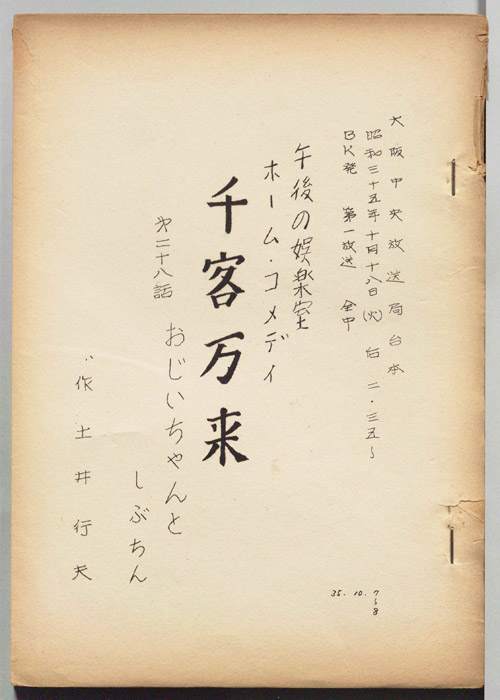 大阪中央放送局台本
昭和三十五年十月十八日(火)后二・三五〜
BK発 第一放送 全中
午後の娯楽室
ホーム・コメディ
千客万来
第二十八話 おじいちゃんと
しぶちん
作 土井行夫
35.10.7〜8